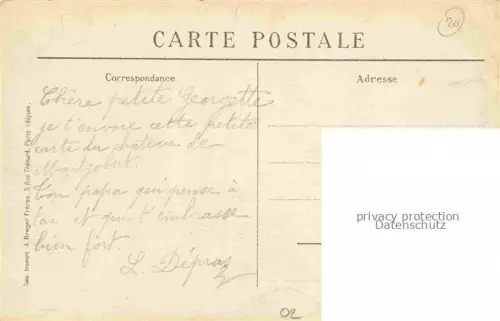 20
CARTE POSTALE
Correspondance
Adresse
Chère petite Georgette
je t'envoie cette petite
carte du château de
Montgobert.
Ton papa qui pense à
toi et qui t'embrasse
bien fort.
L. Dépraz
A. Breger Frères, 9, Rue Thénard, Paris
privacy protection
Datenschutz
02